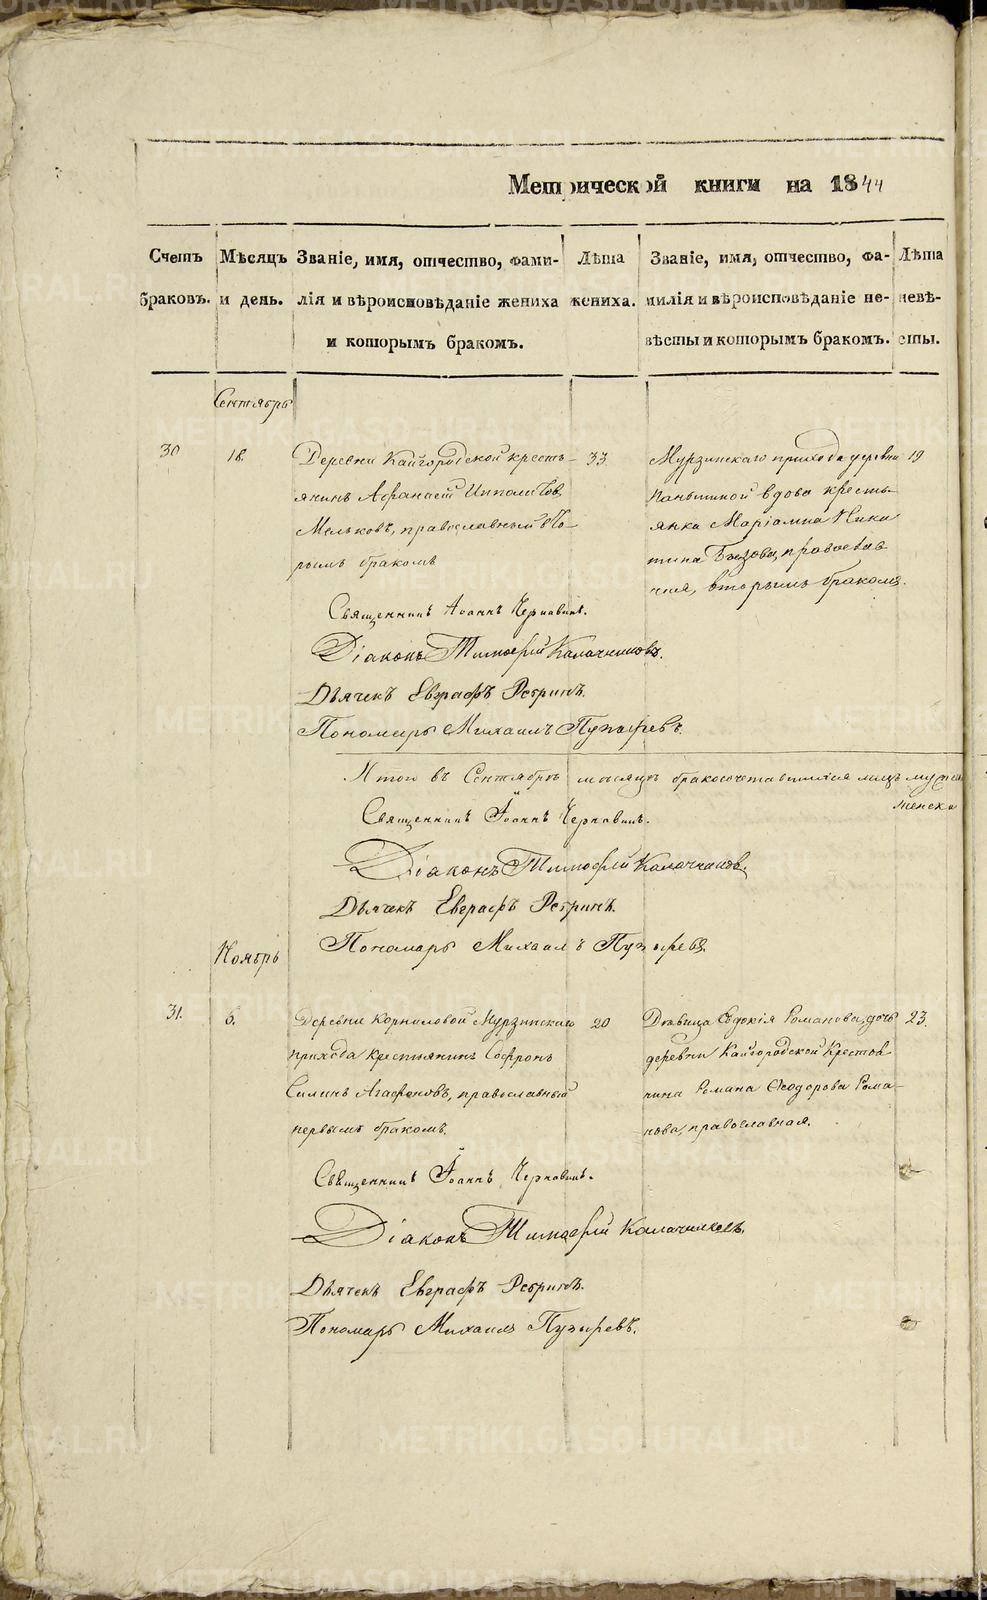 Метрической книги на 1844
Счетъ браковъ.
Мѣсяцъ и день.
Званіе, имя, отчество, фами-
лія и вѣроисповѣданіе жениха
и которымъ бракомъ.
Лѣта жениха.
Званіе, имя, отчество, фа-
милія и вѣроисповѣданіе не-
вѣсты и которымъ бракомъ.
Лѣта невѣ-
сты.
Сентябрь
30
18.
Деревни Кайгородской кресть-
янинъ Афанасій Ипполитовъ
Мельковъ, православный вто-
рымъ бракомъ
33
Мурзинскаго прихода деревни
вдова кресть-
янка Маріамна Ники
тина православ
ная, вторымъ бракомъ.
19
Священникъ Іоаннъ Чернавинъ.
Діаконъ Тимофей Калачниковъ.
Дьячекъ Евграфъ Ребринъ.
Пономарь Михаилъ Пузыревъ.
Итого въ Сентябрѣ мѣсяцѣ бракосочетавшихся лицъ
женска
Священникъ Іоаннъ Чернавинъ.
Діаконъ Тимофей Калачниковъ.
Дьячекъ Евграфъ Ребринъ.
Пономарь Михаилъ Пузыревъ.
Ноябрь
31.
6.
Деревни Корниловой Мурзинскаго
прихода крестьянинъ Софронъ
Силинъ Агафоновъ, православный
первымъ бракомъ.
20
Дѣвица Евдокія Романова, дочь
деревни Кайгородской Крестья
нина Романа Ѳеодорова Рома-
нова, православная.
23.
Священникъ Іоаннъ Чернавинъ.
Діаконъ Тимофей Калачниковъ.
Дьячекъ Евграфъ Ребринъ.
Пономарь Михаилъ Пузыревъ.
METRIKI.GASO-URAL.RU